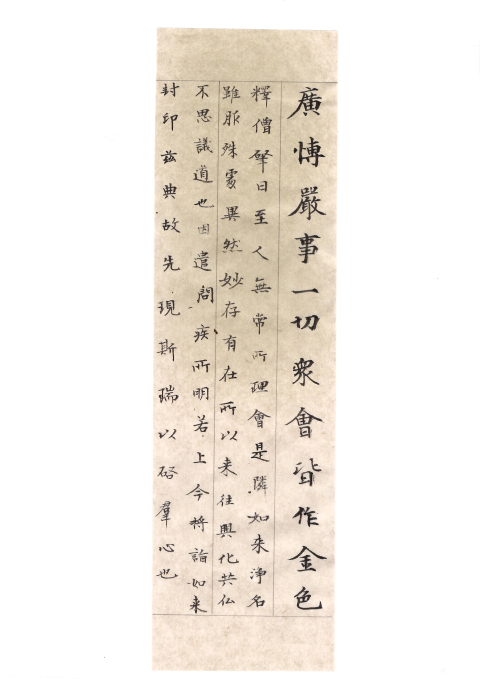 廣愽嚴事一切衆會皆作金色
釋僧肇曰至人無常所理會是隣如来淨名
雖服殊處異然妙存有在所以来往興化共仏
不思議道也因遣問疾所明若上今將論如来
封印兹典故先現斯瑞以啓羣心也